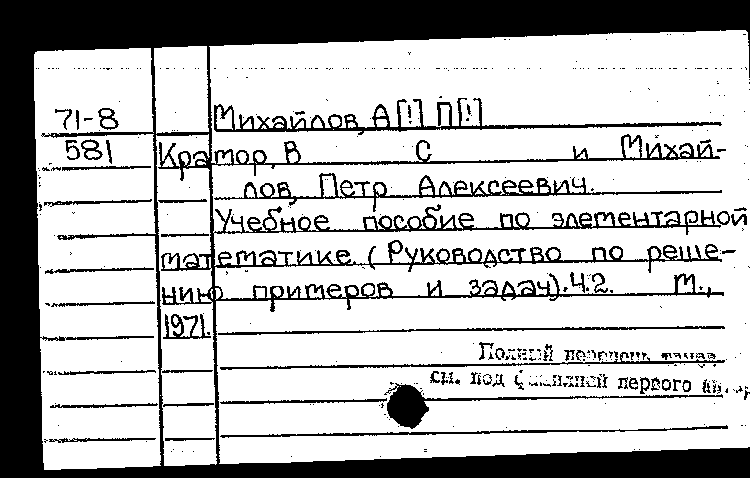 71-8 Михайлов, А[!] П[!]
581 Кратор, В С и Михай-
лов, Петр Алексеевич.
Учебное пособие по элементарной
математике. (Руководство по реше-
нию примеров и задач). Ч.2. М.,
1971.
Полный перечень
см. под фамилией первого